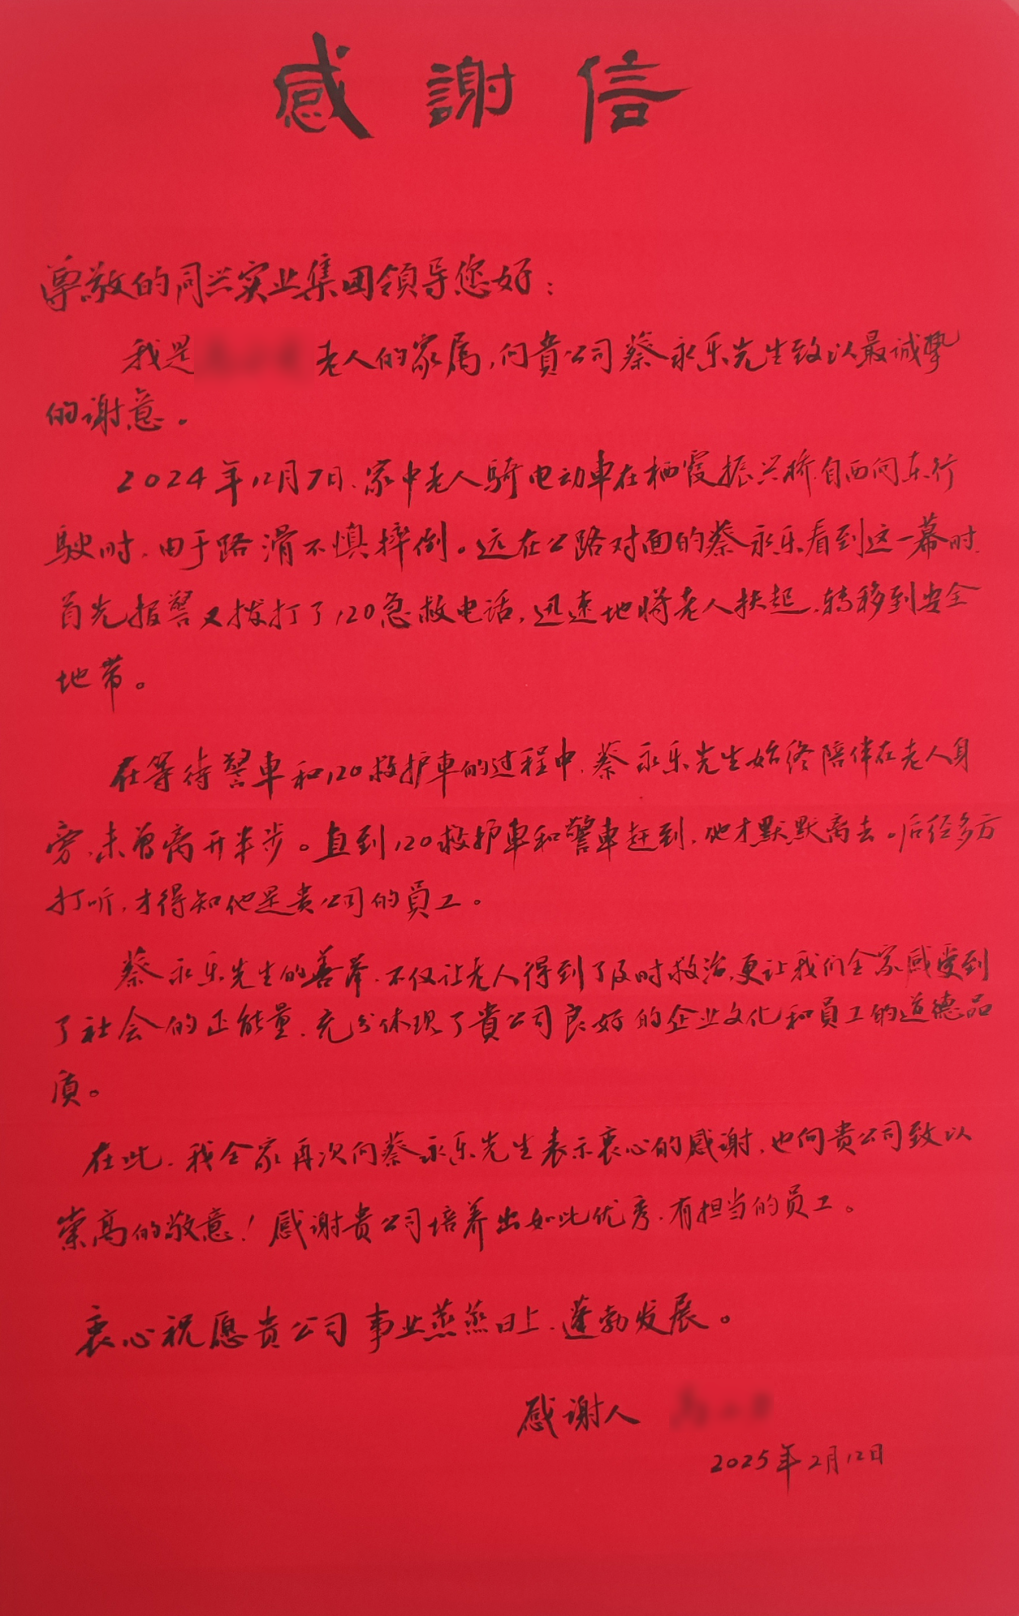 感謝信
尊敬的同兴实业集团領导您好：
我是老人的家属,向貴公司蔡永乐先生致以最诚挚
的谢意。
2024年12月7日、家中老人騎电动車在栖霞振兴橋自西向东行
駛时、由于路滑不慎摔倒。远在公路对面的蔡永乐看到这一幕时、
首先报警又拨打了120急救电话,迅速地將老人扶起、转移到安全
地带。
在等待警車和120救护車的过程中、蔡永乐先生始终陪伴在老人身
旁、未曾离开半步。直到120救护車和警車赶到,他才默默离去。后经多方
打听,才得知他是贵公司的員工。
蔡永乐先生的善举、不仅让老人得到了及时救治,更让我们全家感受到
了社会的正能量、充分体现了貴公司良好的企业文化和員工的道德品
质。
在此、我全家再次向蔡永乐先生表示衷心的感谢,也向贵公司致以
崇高的敬意！感谢貴公司培养出如此优秀、有担当的员工。
衷心祝愿贵公司事业蒸蒸日上、蓬勃发展。
感谢人
2025年2月12日